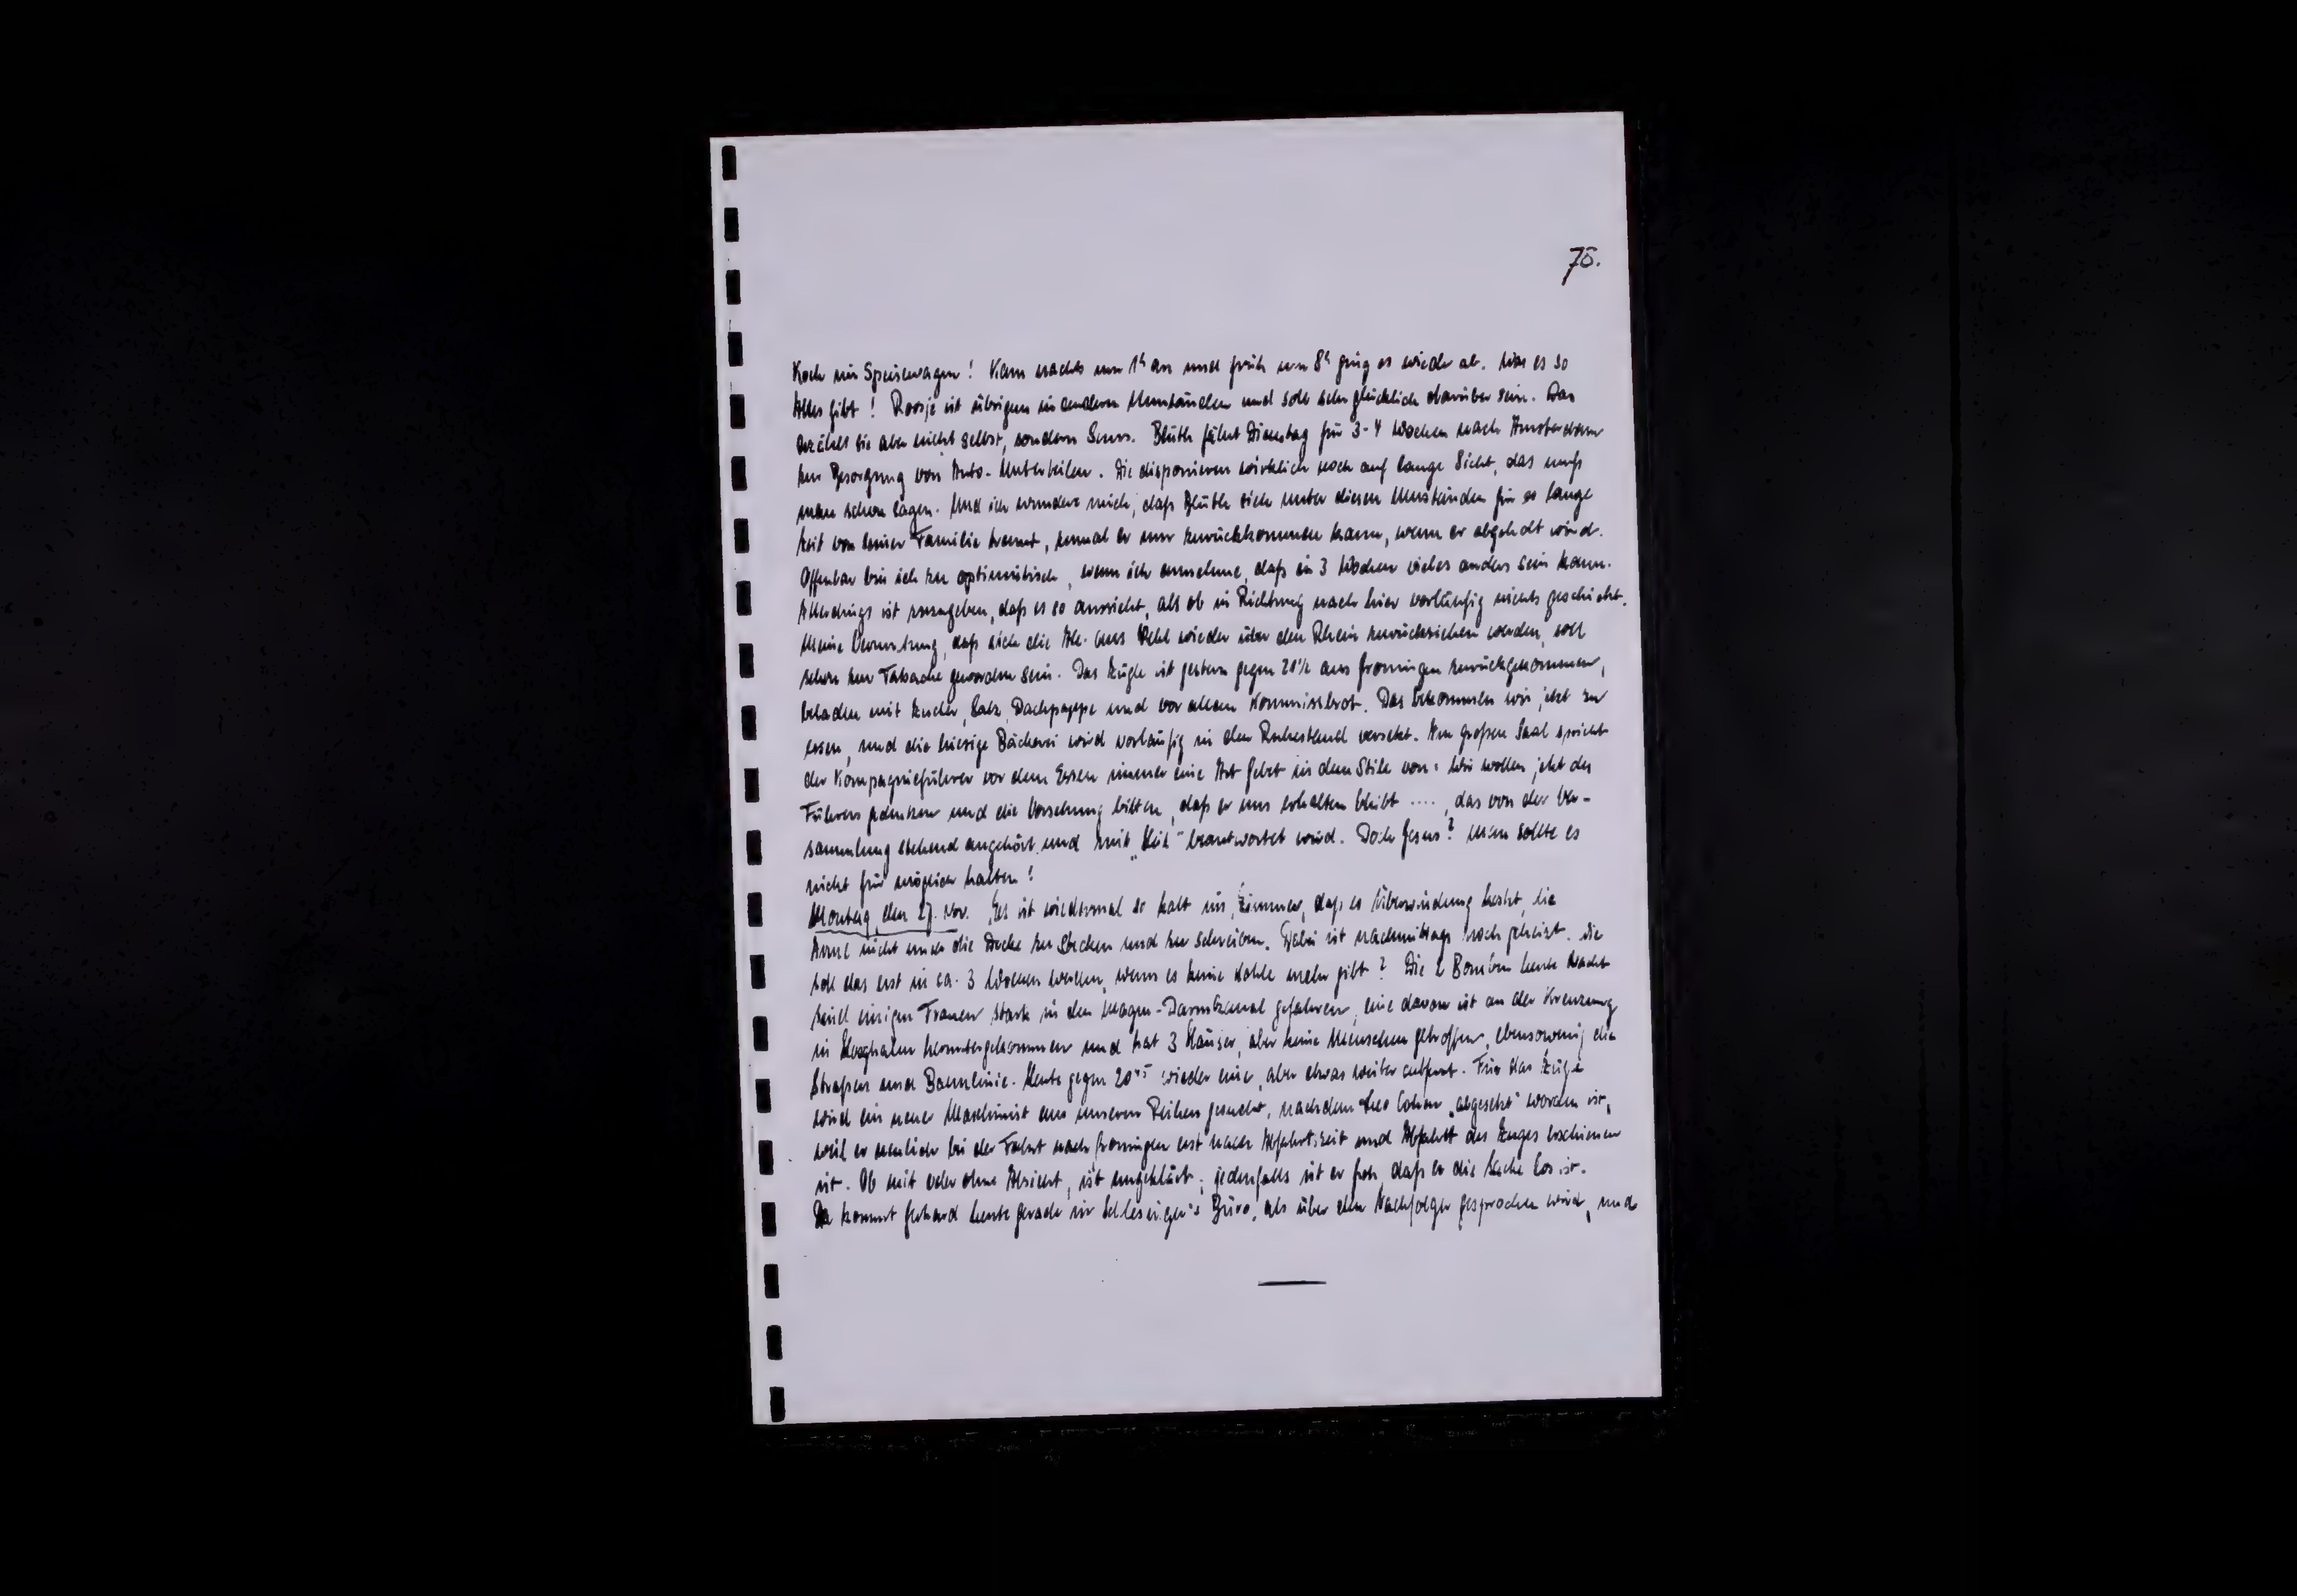 78.
Koch im Speisewagen! Kam nachts um 1h an und früh um 8h ging es wieder ab. Was es so
Alles gibt! Roosje ist übrigens in andern Umständen und soll sehr glücklich darüber sein. Das
erzählt sie aber nicht selbst, sondern Signs. Blüth fährt Dienstag für 3-4 Wochen nach Amsterdam
zur Besorgung von Auto-Unterteilen. Die disponieren wirklich noch auf lange Sicht, das muß
man schon sagen. Und ich wundere mich, daß Blüth sich unter diesen Umständen für so lange
Zeit von seiner Familie trennt, zumal er nur zurückkommen kann, wenn er abgeholt wird.
Offenbar bin ich zu optimistisch, wenn ich annehme, daß in 3 Wochen vieles anders sein kann.
Allerdings ist zuzugeben, daß es so aussieht, als ob in Richtung nach hier vorläufig nichts geschieht.
Meine Vermutung, daß sich die All. aus Kehl wieder über den Rhein zurückziehen werden, soll
schon zur Tatsache geworden sein. Das Zügle ist gestern gegen 20 1/2 aus Groningen zurückgekommen,
beladen mit Zucker, Salz, Dachpappe und vor allem Kommissbrot. Das bekommen wir jetzt zu
essen, und die hiesige Bäckerei wird vorläufig in den Ruhestand versetzt. Im großen Saal spricht
der Kompagnieführer vor dem Essen immer eine Art Gebet in dem Stile von: Wir wollen jetzt des
Führers gedenken und die Vorsehung bitten, daß er uns erhalten bleibt ...., das von der Ver-
sammlung stehend angehört und mit "Heil" beantwortet wird. Doch Jesus? Man sollte es
nicht für möglich halten!
Montag, den 27. Nov. Es ist wiedermal so kalt im Zimmer, daß es Überwindung kostet, die
Arme nicht unter die Decke zu stecken und zu schreiben. Dabei ist nachmittags noch geheizt. Wie
soll das erst in ca. 3 Wochen werden, wenn es keine Kohle mehr gibt? Die 2 Bomben heute Nacht
sind einigen Frauen stark in den Magen-Darmkanal gefahren, eine davon ist an der Kreuzung
in Hooghalen heruntergekommen und hat 3 Häuser, aber keine Menschen getroffen, ebensowenig die
Straßen und Bahnlinie. Heute gegen 20 45 wieder eine, aber etwas weiter entfernt. Für das Zügle
wird ein neuer Maschinist aus unseren Reihen gesucht, nachdem Leo Cohen "abgesetzt" worden ist,
weil er neulich bei der Fahrt nach Groningen erst nach Abfahrtszeit und Abfahrt des Zuges erschienen
ist. Ob mit oder ohne Absicht, ist ungeklärt; jedenfalls ist er froh, daß er die Sache los ist.
Da kommt Gerhard heute gerade in Schlesinger's Büro, als über den Nachfolger gesprochen wird, und